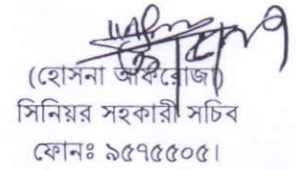 (হোসনা আফরোজা)
সিনিয়র সহকারী সচিব
ফোনঃ ৯৫৭৫৫০৫।